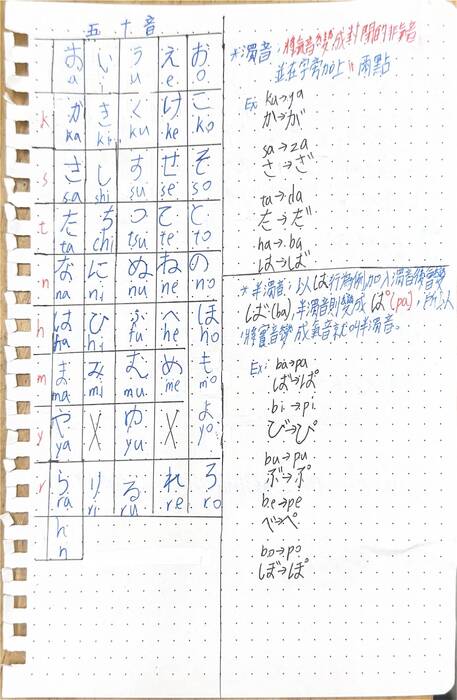 五十音
あ い う え お
a i u e o
k か き く け こ
ka ki ku ke ko
s さ し す せ そ
sa shi su se so
t た ち つ て と
ta chi tsu te to
n な に ぬ ね の
na ni nu ne no
h は ひ ふ へ ほ
ha hi fu he ho
m ま み む め も
ma mi mu me mo
y や X ゆ X よ
ya yu yo
r ら り る れ ろ
ra ri ru re ro
ん
n
*濁音:將氣音變成封閉的非氣音
並在字旁加上〃兩點
Ex: ku→ya
か→が
sa→za
さ→ざ
ta→da
た→だ
ha→ba
は→ば
*半濁音:以は行為例,加入濁音後會變
ば(ba),半濁音則變成ぱ(pa),所以
將實音變成氣音就叫半濁音。
Ex: ba→pa
ば→ぱ
bi→pi
び→ぴ
bu→pu
ぶ→ぷ
be→pe
べ→ぺ
bo→po
ぼ→ぽ